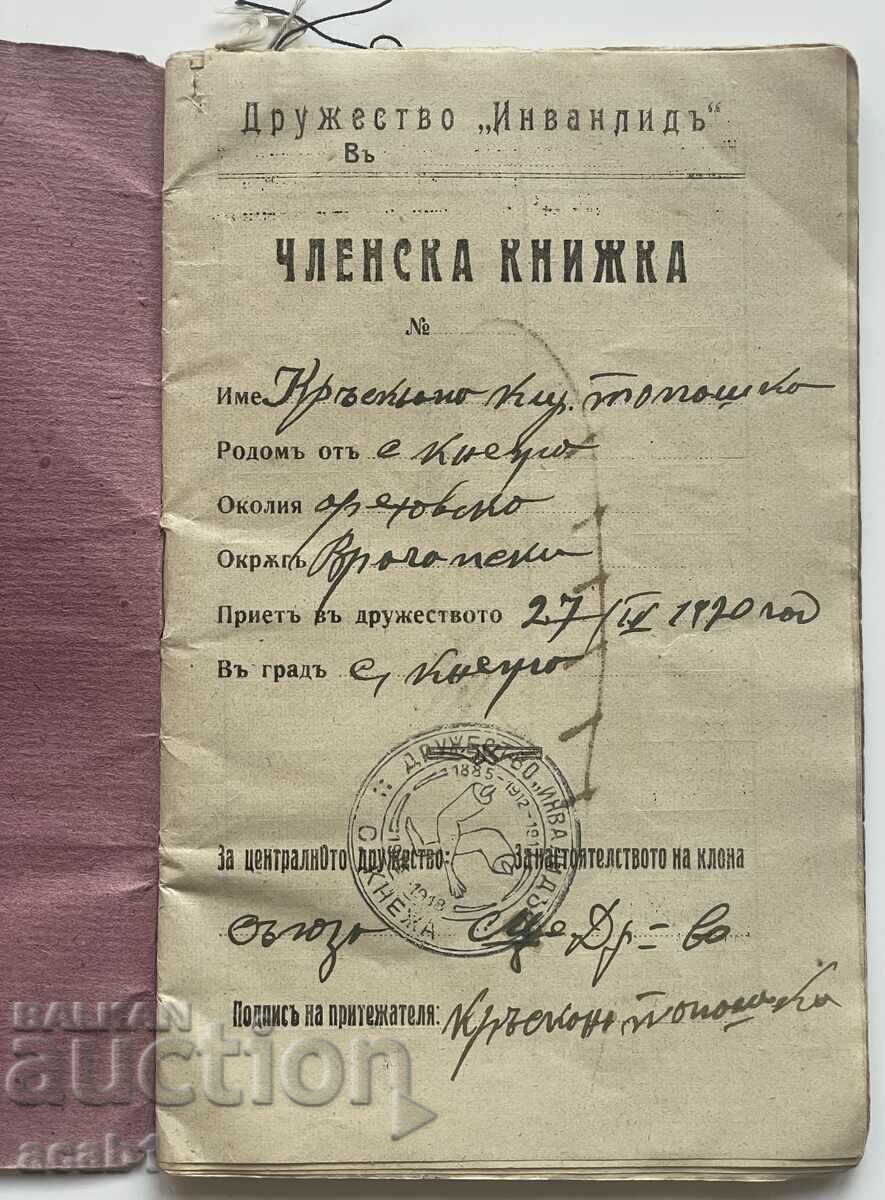 Дружество „Инванлидъ“
Въ
ЧЛЕНСКА КНИЖКА
№
Име Кръстю Кц. топошко
Родомъ отъ с Кнежа
Околия ореховско
Окрѫгъ Врачански
Приетъ въ дружеството 27/IV 1920 год
Въ градъ с, Кнежа
ДРУЖЕСТВО „ИНВАЛИДЪ“
С. КНЕЖА
1885-1912-191
1918
За централнОто дружество: За настоятелството на клона
съюза Др=во
Подписъ на притежателя: топошко
BALKAN
auction
acab1